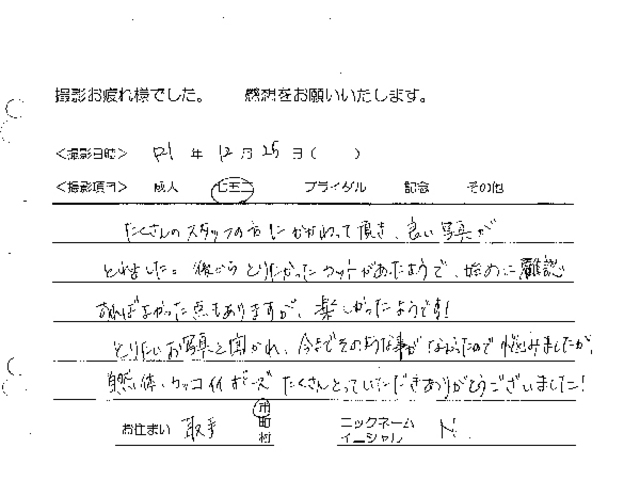 撮影お疲れ様でした。 感想をお願いいたします。
<撮影日時> 年 12月25日( )
<撮影項目> 成人 七五三 ブライダル 記念 その他
たくさんのスタッフの方にかかわって頂き、良い写真が
とれました。後からとりたかったカットがあったようで、始めに確認
すればよかった点もありますが、楽しかったようです!
とりたいお写真と聞かれ、今までそのような事がなかったので悩みましたが、
自然体、カッコイイポーズたくさんとっていただきありがとうございました!
お住まい 取手 市町村 ニックネーム イニシャル N.